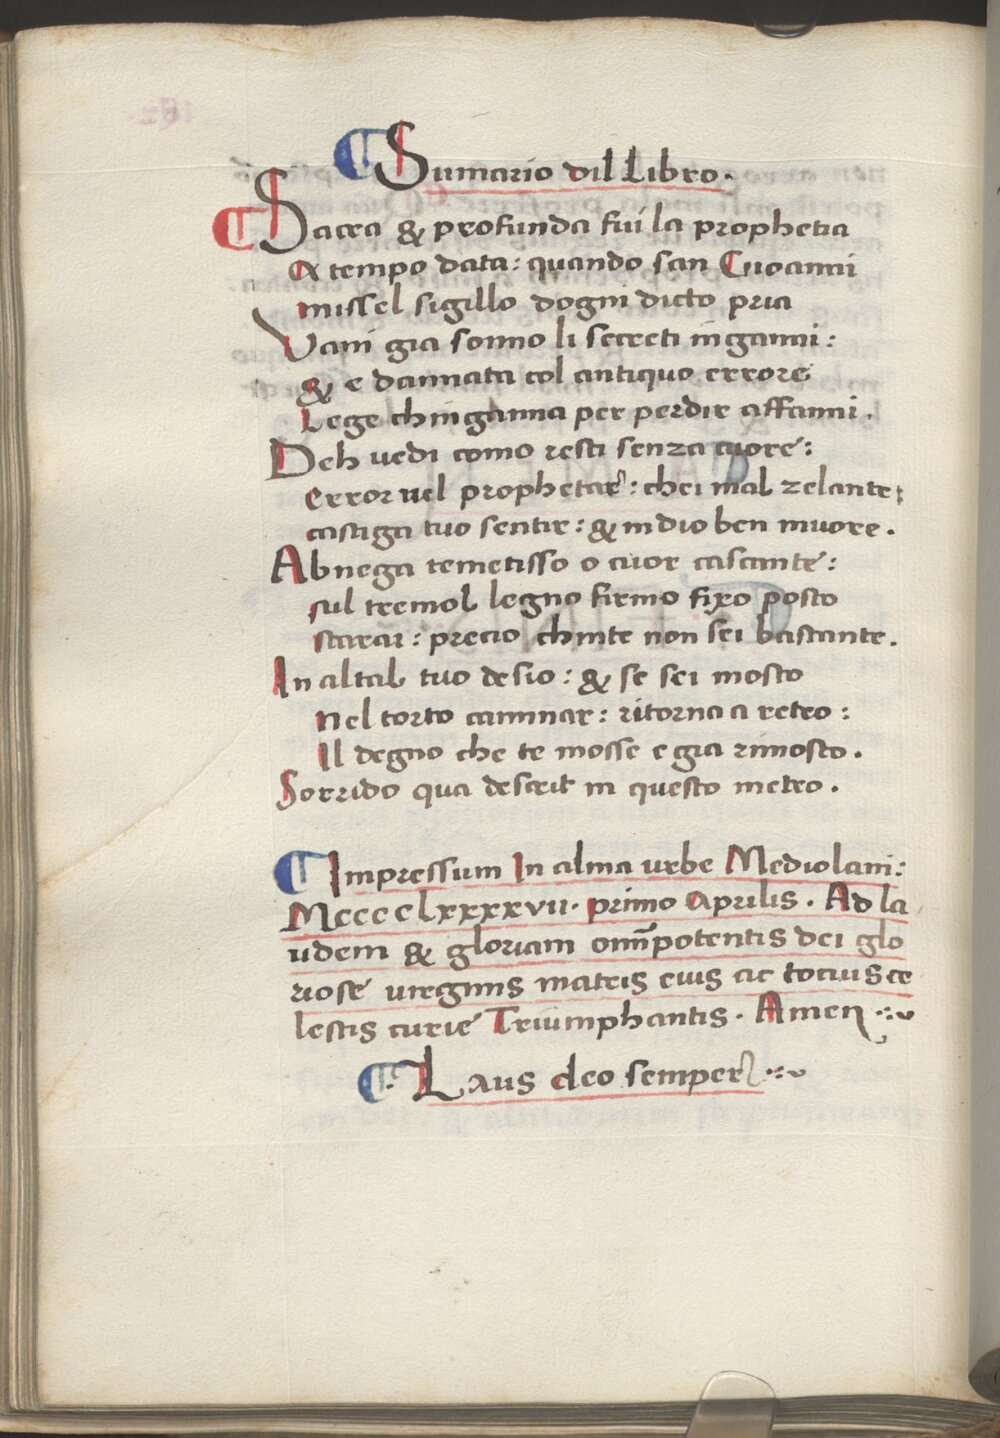 ¶ Sumario dil Libro.
¶ Sacra & profunda fui la prophetia
A tempo data: quando san Cuoanni
missel sigillo dogni dicto pria
Vani gia sonno li secreti inganni:
& e dannata col antiquo errore
Lege chinganna per perdir affanni.
Deh vedi como resti senza cuore:
Error nel prophetar: chei mal zelante:
castiga tuo sentir: & in dio ben muore.
Abnega temetisso o cuor cascante:
sul tremol legno firmo fixo posto
starai: precio chinte non sei bastante.
In altal tuo desio: & se sei mosto
Nel torto caminar: ritorna a retro:
Il degno che te mosse e gia rimosto.
Sorrido qua descrit in questo metro.
¶ Impressum In alma urbe Mediolani:
Mcccclxxxxvii. primo Aprilis. Ad la
udem & gloriam omīpotentis dei glo
riose virginis matris eius ac tocius ce
lestis curie Triumphantis. Amen
¶ Laus deo semper